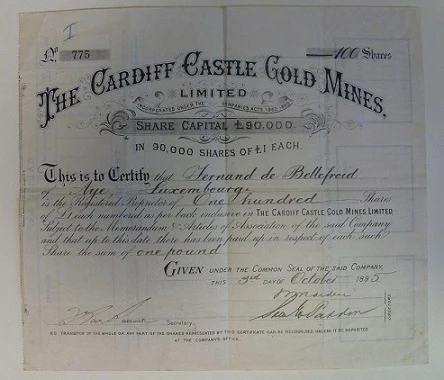 I
No. 775
100 Shares
THE CARDIFF CASTLE GOLD MINES,
LIMITED
INCORPORATED UNDER THE COMPANIES ACTS
SHARE CAPITAL £90,000.
IN 90,000 SHARES OF £1 EACH.
This is to Certify that Fernand de Bellefroid
of Aye, Luxembourg
is the Registered Proprietor of One hundred Shares
of £1 each numbered as per back inclusive in THE CARDIFF CASTLE GOLD MINES LIMITED
Subject to the Memorandum & Articles of Association of the said Company
and that up to this date there has been paid up in respect of each such
Share the sum of one pound
GIVEN UNDER THE COMMON SEAL OF THE SAID COMPANY,
THIS 3rd DAY OF October 1895
DIRECTORS
Secretary.
NO TRANSFER OF THE WHOLE OR ANY PART OF THE SHARES REPRESENTED BY THIS CERTIFICATE CAN BE RECOGNISED UNLESS IT BE DEPOSITED
AT THE COMPANY'S OFFICE.